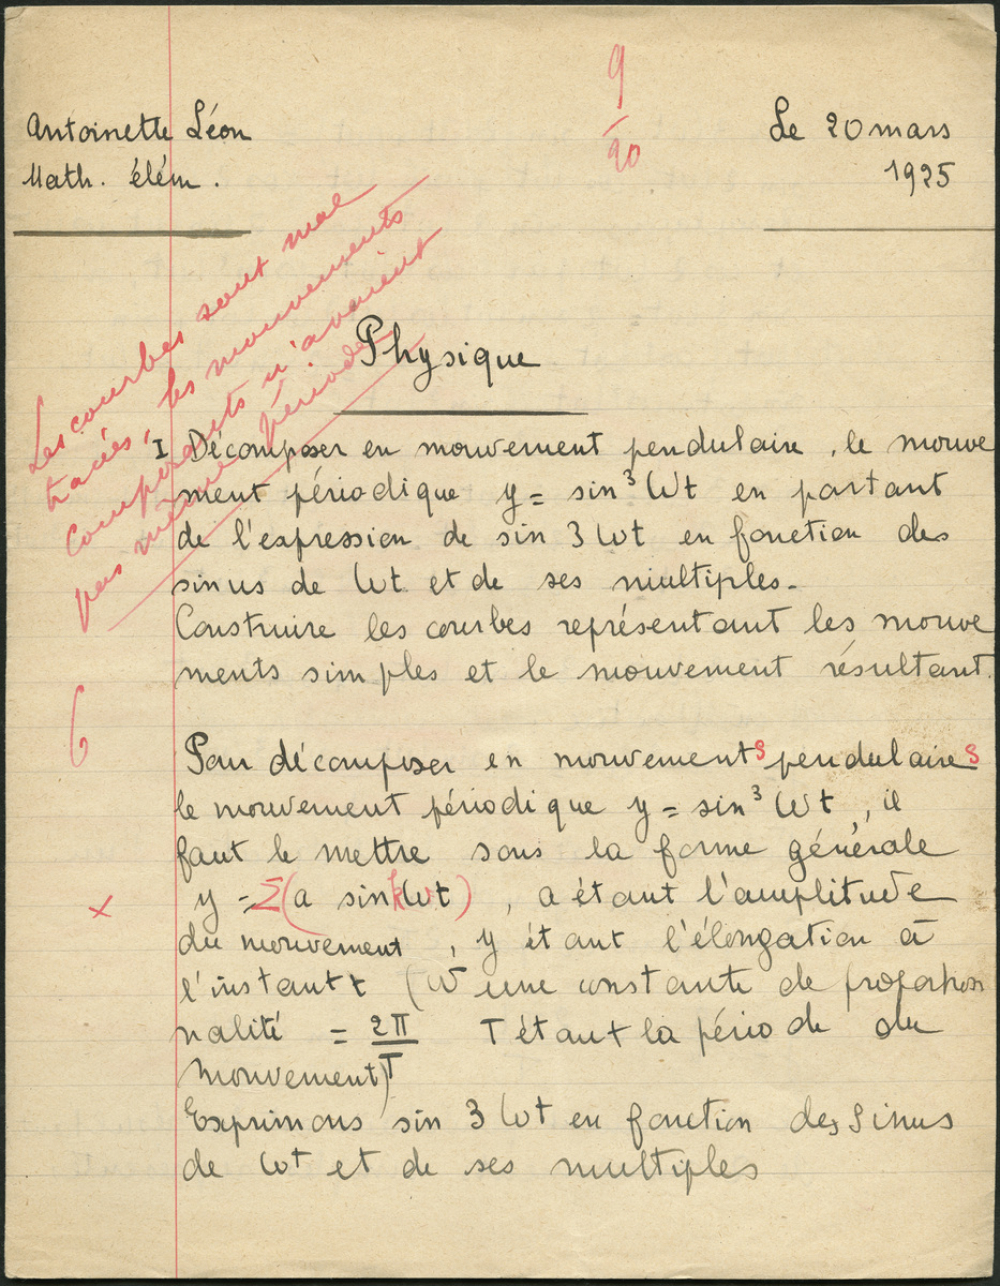 9
20
Antoinette Léon
Le 20 mars
Math. élém.
1925
Les courbes sont mal
tracées, les mouvements
composants n'avaient
pas même période
Physique
I Décomposer en mouvement pendulaire, le mouve
ment périodique y = sin³ ωt en partant
de l'expression de sin 3 ωt en fonction des
sinus de ωt et de ses multiples.
Construire les courbes représentant les mouve
ments simples et le mouvement résultant.
6
Pour décomposer en mouvements pendulaires
le mouvement périodique y = sin³ ωt, il
faut le mettre sous la forme générale
x
y = Σ(a sin kωt), a étant l'amplitude
du mouvement, y étant l'élongation à
l'instant t (ω une constante de proportion
nalité = 2π/T T étant la période du
mouvement)
Exprimons sin 3 ωt en fonction des sinus
de ωt et de ses multiples